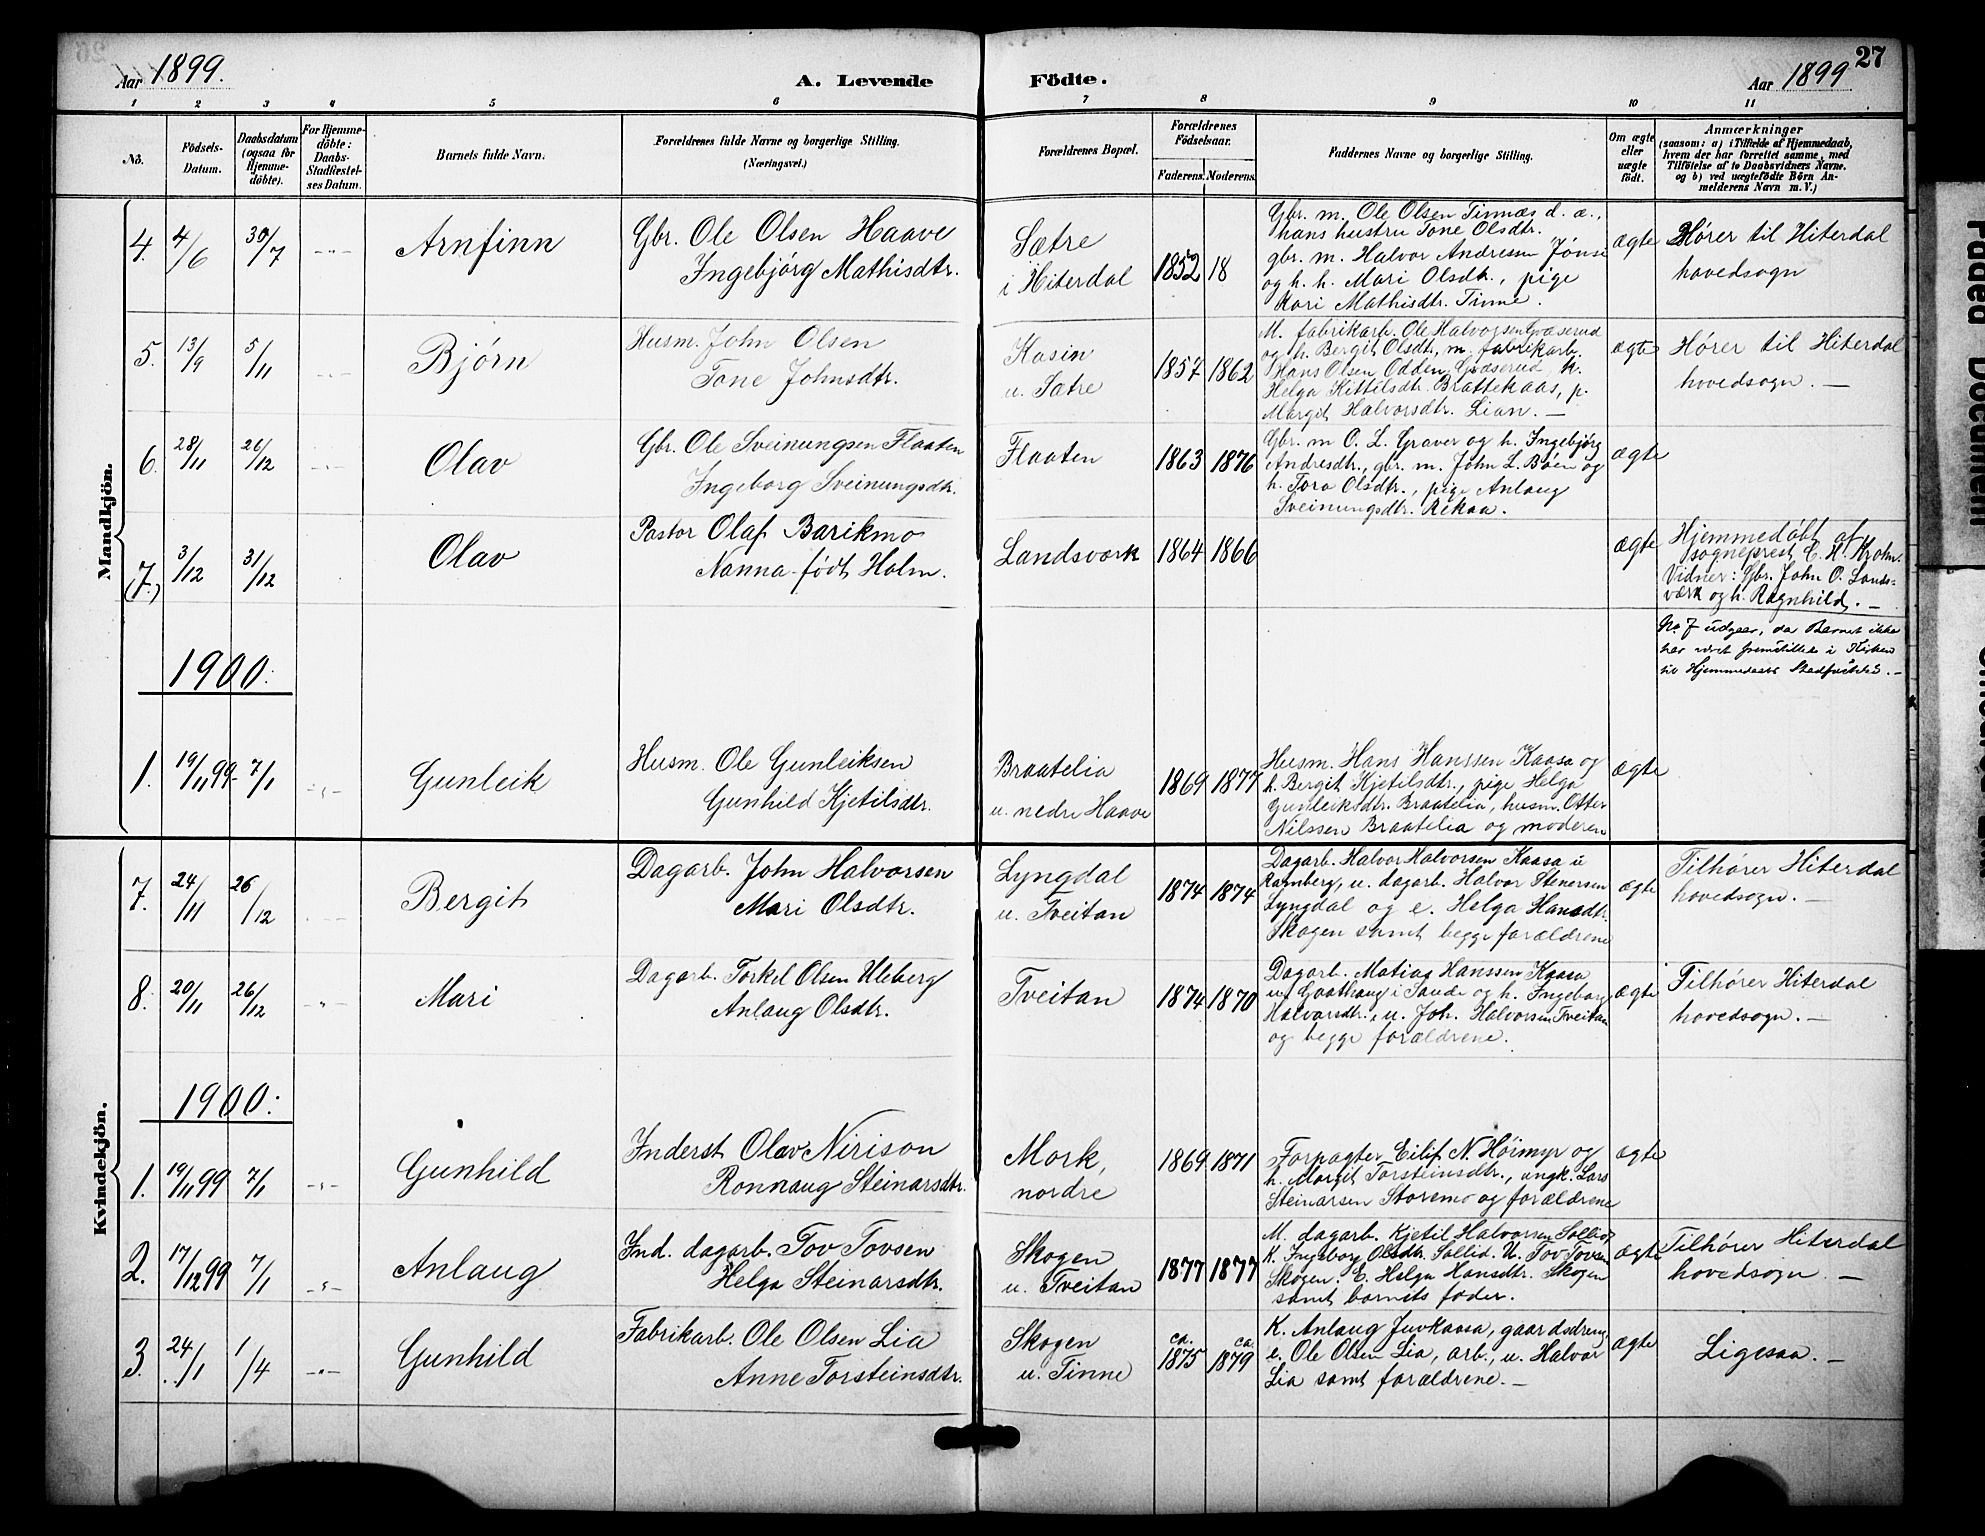 27
Aar 1899.
A. Levende Födte.
Aar 1899
1 2 3 4 5 6 7 8 9 10 11
No.
Födsels-
Datum.
Daabsdatum
(ogsaa for
Hjemme-
döbte).
For Hjemme-
döbte:
Daabs-
Stadfæstel-
ses Datum.
Barnets fulde Navn.
Forældrenes fulde Navne og borgerlige Stilling.
(Næringsvei.)
Forældrenes Bopæl.
Forældrenes
Födselsaar.
Faderens. Moderens.
Faddernes Navne og borgerlige Stilling.
Om ægte
eller
uægte
født.
Anmærkninger
(saasom: a) i Tilfælde af Hjemmedaab,
hvem der har forrettet samme, med
Tilföielse af to Daabsvidners Navne.
og b) ved uægtefödte Börn An-
melderens Navn m. V.)
Mandkjön.
4. 4/6 30/7 -"- Arnfinn
Gbr. Ole Olsen Haave
Ingebjörg Mathisdtr.
Sætre
i Hiterdal
1852 18
Gbr. m. Ole Olsen Tinnæs d. æ.,
hans hustru Tone Olsdtr.
gbr. m. Halvor Andresen Jönsi
og h. h. Mari Olsdtr., pige
Kari Mathisdtr. Tinne.
ægte
Hører til Hiterdal
hovedsogn
5. 13/9 5/11 -"- Bjørn
Husm. John Olsen
Tone Johnsdtr.
Kasin
u. Sætre
1857 1862
M. fabrikarb. Ole Halvorsen Gvæserud
og h. Bergit Olsdtr, m. fabrikarb.
Hans Olsen Odden, Gvæserud k.
Helga Kittilsdtr. Blattekaas, p.
Margit Halvorsdtr. Lian. —
ægte
Hører til Hiterdal
hovedsogn. —
6. 28/11 26/12 -"- Olav
Gbr. Ole Sveinungsen Flaaten
Ingeborg Sveinungsdtr.
Flaaten
1863 1876
Gbr. m O. L. Graver og h. Ingebjörg
Andresdtr., gbr. m. John L. Bøen og
h. Tora Olsdtr., pige Anlaug
Sveinungsdtr. Rekaa.
ægte
(7.) 3/12 31/12 Olav
Pastor Olaf Barikmo
Nanna født Holm.
Landsverk
1864 1866
ægte
Hjemmedøbt af
sogneprest C. H. Krohn.
Vidner: Gbr. John O. Lands-
værk og h. Ragnhild. —
No. 7 udgaar, da Barnet ikke
har været fremstillet i Kirken
til Hjemmedaabs Stadfæstelse. —
1900:
1. 19/11 99 7/1 -"- Gunleik
Husm. Ole Gunleiksen
Gunhild Kjetilsdtr.
Braatelia
u. nedre Haave
1869 1877
Husm. Hans Hanssen Kaasa og
h. Bergit Kjetilsdtr., pige Helga
Gunleiksdtr. Braatelia, husm. Otter
Nilssen Braatelia og moderen
ægte
Kvindekjön.
7. 24/11 26/12 Bergit
Dagarb. John Halvorsen
Mari Olsdtr.
Lyngdal
u. Tveitan
1874 1874
Dagarb. Halvor Halvorsen Kaasa u
Ramberg, u. dagarb. Halvor Stenersen
Lyngdal og e. Helga Hansdtr.
Skogen samt begge forældrene
ægte
Tilhører Hiterdal
hovedsogn. —
8. 20/11 26/12 -"- Mari
Dagarb. Torkel Olsen Uleberg
Anlaug Olsdtr.
Tveitan
1874 1870
Dagarb. Matias Hanssen Kaasa
u. Graathaug i Saude og h. Ingeborg
Halvorsdtr., u. Joh. Halvorsen Tveitan
og begge forældrene.
ægte
Tilhører Hiterdal
hovedsogn. —
1900:
1. 19/11 99 7/1 -"- Gunhild
Inderst Olav Nirison
Ronnaug Steinarsdtr.
Mork,
nordre
1869 1871
Forpagter Eilif N. Höimyr og
h. Margit Torsteinsdtr., ungk. Lars
Steinarsen Storemo og forældrene
ægte
2. 17/12 99 7/1 -"- Anlaug
Ind. dagarb. Tov Tovsen
Helga Steinarsdtr.
Skogen
u. Tveitan
1877 1877
M. dagarb. Kjetil Halvorsen Sollid,
K. Ingeborg Olsdtr. Sollid. U. Tov Tovsen
Skogen. E. Helga Hansdtr. Skogen
samt barnets fader.
ægte
Tilhører Hiterdal
hovedsogn. —
3. 24/1 1/4 -"- Gunhild
Fabrikarb. Ole Olsen Lia
Anne Torsteinsdtr.
Skogen
u. Tinne
ca. 1875 ca. 1879
K. Anlaug Juvkaasa, gaardsdreng
e. Ole Olsen Lia, arb., u. Halvor
Lia samt forældrene. —
ægte
Ligesaa. —